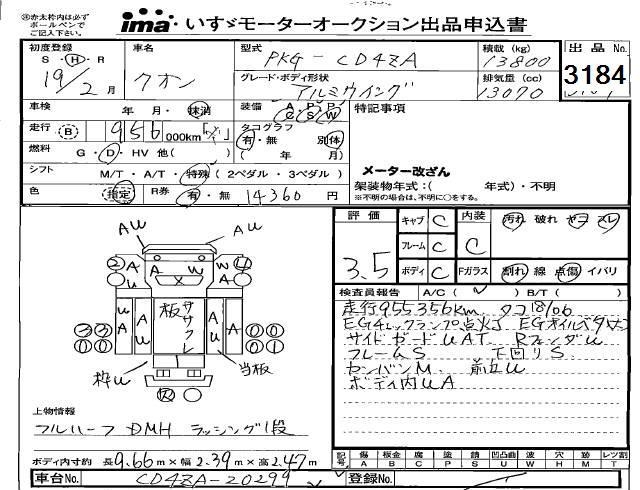 ※赤太枠内は必ず
ボールペンで
ご記入下さい。
ima いすゞモーターオークション出品申込書
初度登録 S・H・R 19/2月
車名 クオン
型式 PKG-CD4ZA
積載(kg) 13800
出品No. 3184
グレード・ボディ形状 アルミウイング
排気量(cc) 13070
車検 年 月・抹消
装備 A/C P/S P/W
特記事項
走行 B 956 000km
タコグラフ 有・無 別体
( 年 月)
燃料 G・D・HV 他( )
メーター改ざん
シフト M/T・A/T・特殊(2ペダル・3ペダル)
架装物年式:( 年式)・不明
※不明の場合は、不明に○をする。
色 指定 R券 有・無 14360円
評価 3.5
キャブ C
フレーム C
ボディ C
内装 C
汚れ 破れ ヤコ スレ
Fガラス 割れ 線 点傷 イバリ
検査員報告 A/C( ) B/T( )
走行955356km タコ18/06
EGチェックランプ点灯 EGオイル
サイドガードU AT. RフェンダU
フレームS 下回りS
センバンM. 前立U
ボディ内UA
AU AU
2 A A W 4
U A U
UA AU A AU
板ササクレ
枠U 当板
上物情報
フルハーフ DMH ラッシング1段
ボディ内寸約 長9.66m×幅2.39m×高2.47m
記号 傷A 板金B 腐C 塗P 錆S 凹凸曲U 波W 穴H 跡M 断T レツ割
車台No. CD4ZA-20299
登録No.